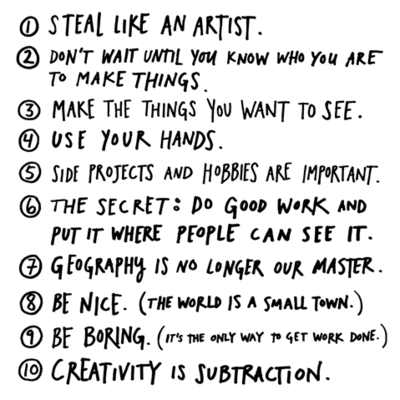 ① STEAL LIKE AN ARTIST.
② DON'T WAIT UNTIL YOU KNOW WHO YOU ARE
TO MAKE THINGS.
③ MAKE THE THINGS YOU WANT TO SEE.
④ USE YOUR HANDS.
⑤ SIDE PROJECTS AND HOBBIES ARE IMPORTANT.
⑥ THE SECRET: DO GOOD WORK AND
PUT IT WHERE PEOPLE CAN SEE IT.
⑦ GEOGRAPHY IS NO LONGER OUR MASTER.
⑧ BE NICE. (THE WORLD IS A SMALL TOWN.)
⑨ BE BORING. (IT'S THE ONLY WAY TO GET WORK DONE.)
⑩ CREATIVITY IS SUBTRACTION.